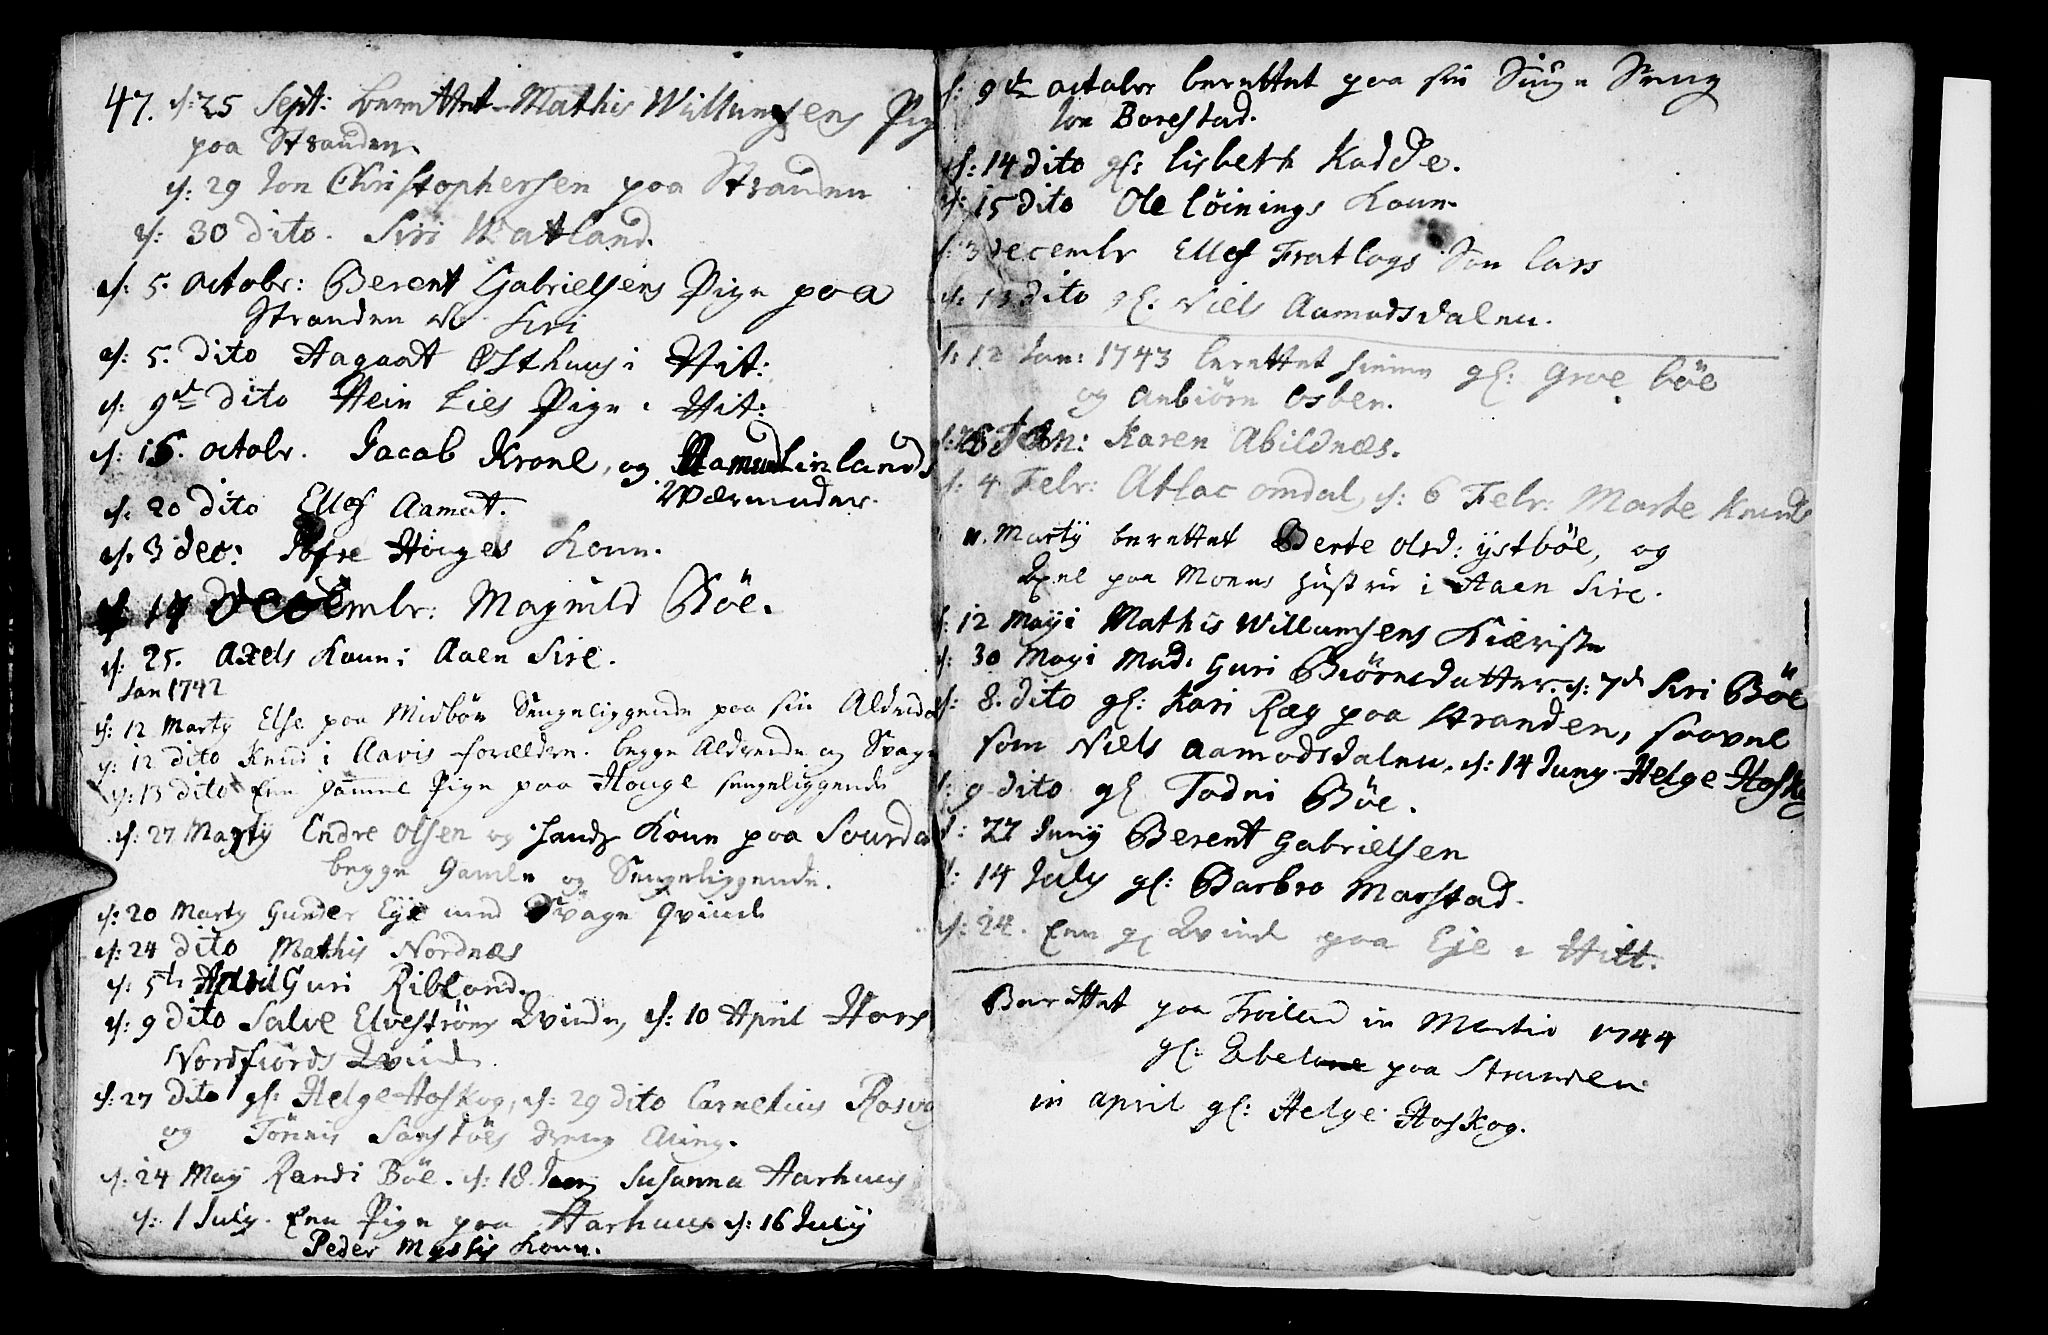 47. d: 25 Sept: berettet Mathis Willumsens Pig
paa Stranden.
d: 29 Jon Christophersen paa Stranden
d: 30 dito. Siri Watland.
d: 5. octobr: Berent Gabrielsens Pige paa
Stranden Siri
d: 5. dito Aagaat Østhuus i Hit:
d: 9de dito Hein Lies Pige i Hit:
d: 15. octobr. Jacob Krone, og Aamund Linlands
Wærmoder.
d: 20 dito Ellef Aamot.
d: 3 dec: Tofre Houges Kone.
d 14 decembr: Magnild Böe.
d: 25. Axels Kone i Aaen Sire.
Jan 1742
d: 12 Marty Else paa Midböe Sengeliggende paa sin Alderdo
d: 12 dito Knud i Aavis forældre. begge Aldrende og Svage
d: 13 dito Een gammel Pige paa Houge sengeliggende
d: 27 Marty Endre Olsen og hands Kone paa Sourda
begge Gamle og Sengeliggende.
d: 20 Marty Gunder Eye med Svage Qvinde
d: 24 dito Mathis Nordnæs
d: 5te April Guri Ribland.
d: 9 dito Salve Elveströms Qvinde, d: 10 April Hans
Nordfiords Qvinde.
d: 27 dito gl: Helge Hoskog, d: 29 dito Cornelius Rosvo
og Tönnis dreng Elling.
d: 24 May Randi Böe. d: 18 Juny Susanna Aarhuus
d: 1 July. Een Pige paa Aarhuus d: 16 July
Peder Myssis Kone.
d: 9de octobr berettet paa sin Siuge Seng
Jon Barstad.
d: 14 dito gl: Lisbeth Kadde.
d: 15 dito Ole Löinings Kone.
d: 3 decembr Ellef Fratlags Søn Lars
d: 13 dito gl: Niels Aamodsdalen.
d: 12 Jan: 1743 berettet hieme gl: Groe Böe
og Anbiörn Osben.
d: 26 Jan: Karen Abildnæs.
d: 4 Febr: Atlac Omdal, d: 6 Febr: Marte Knuds
11. Marty berettet Berte Olsd: Ystböe, og
Axel paa Moens Hustrue i Aaen Sire.
d: 12 Mayi Mathis Willumsens Kiæriste
d: 30 Mayi Mad: Guri Biörnsdatter. d: 7de Siri Böe
d: 8. dito gl: Kari Ræg paa Stranden, saavel
som Niels Aamodsdalen. d: 14 Juny Helge Hosko
d: 9 dito gl Todni Böe.
d: 27 Juny Berent Gabrielsen
d: 14 July gl: Barbro Marstad.
d: 24. Een gl Qvinde paa Eje i Hitt.
Berettet paa Froiland in Martio 1744
gl: Abelone paa Stranden
in april gl: Helge Hoskog.